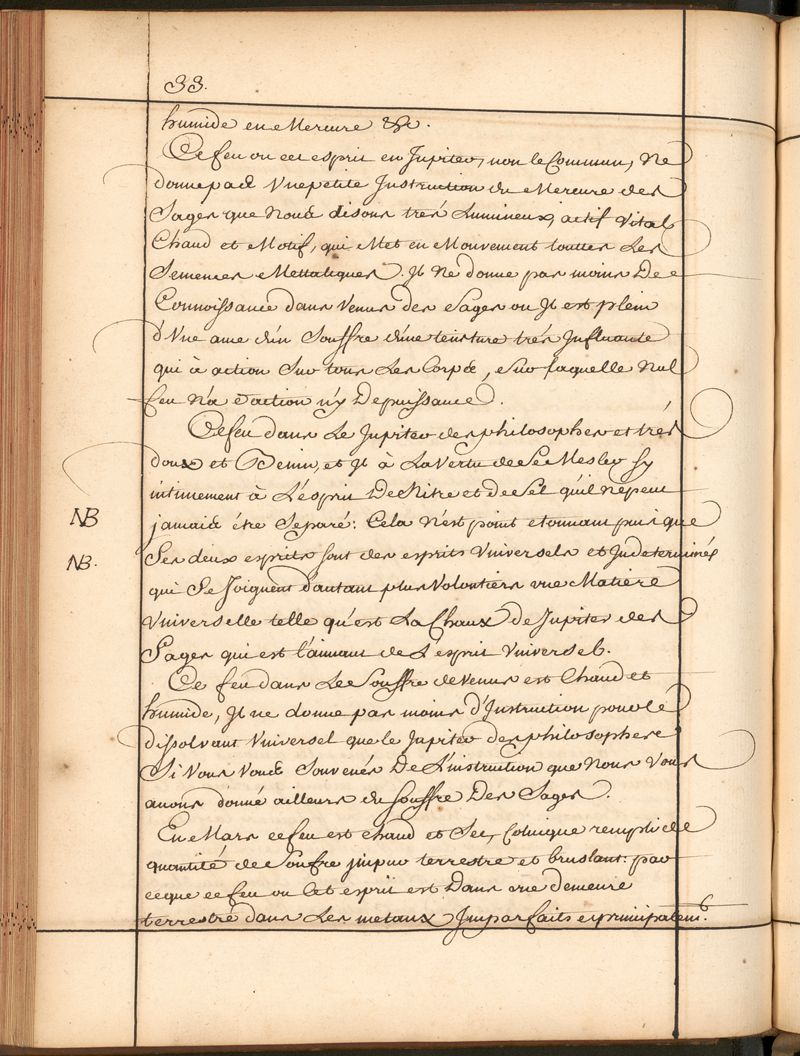 33.
humide en Mercure &c.
Ce feu ou cet esprit en Jupiter, non le Commun, Ne
donne pas Vne petite Instruction du Mercure des
Sages que Nous disons trés Lumineux, actif Vital
Chaud et Motif, qui Met en Mouvement touttes Les
Semences Mettaliques. Jl Ne donne pas moins De
Connoissance dans Venus des Sages ou Jl est plein
d'Vne ame d'un Souffre d'une teinture trés Influante
qui à action Sur tous Les Corps, Sur laquelle Nul
feu N'a d'action n'y De puissance.
Ce feu dans Le Jupiter des philosophes et trés
doux et Benin, et Jl à La Vertu de Se Mesler Sy
intimement à L'ésprit De Nitre et de Sel qu'il N'epeut
jamais étre Separé: Cela N'est point etonnant puisque
NB
Ses deux esprits sont des esprits Vniversels et Jndeterminés
NB.
qui Se Joignent d'autant plus Volontiers vne Matiere
Vniverselle telle qu'est La Chaux de Jupiter des
Sages qui est l'aimant de L'esprit Vniversel.
Ce feu dans Le Souffre de Venus est Chaud et
humide, Jl ne donne pas moins d'Instruction pour le
dissolvant Vniversel que le Jupiter des philosophes
Si Vous Vous Souvenés De L'instruction que Nous Vous
avons donné ailleurs du Souffre Des Sages.
En Mars ce feu est chaud et Sec, Colerique rempli de
quantité de Soufre jmpur terrestre et bruslant: par
ce que ce feu ou Cet esprit est Dans vne demeure
terrestre dans Les metaux Jmparfaits et principalem.t